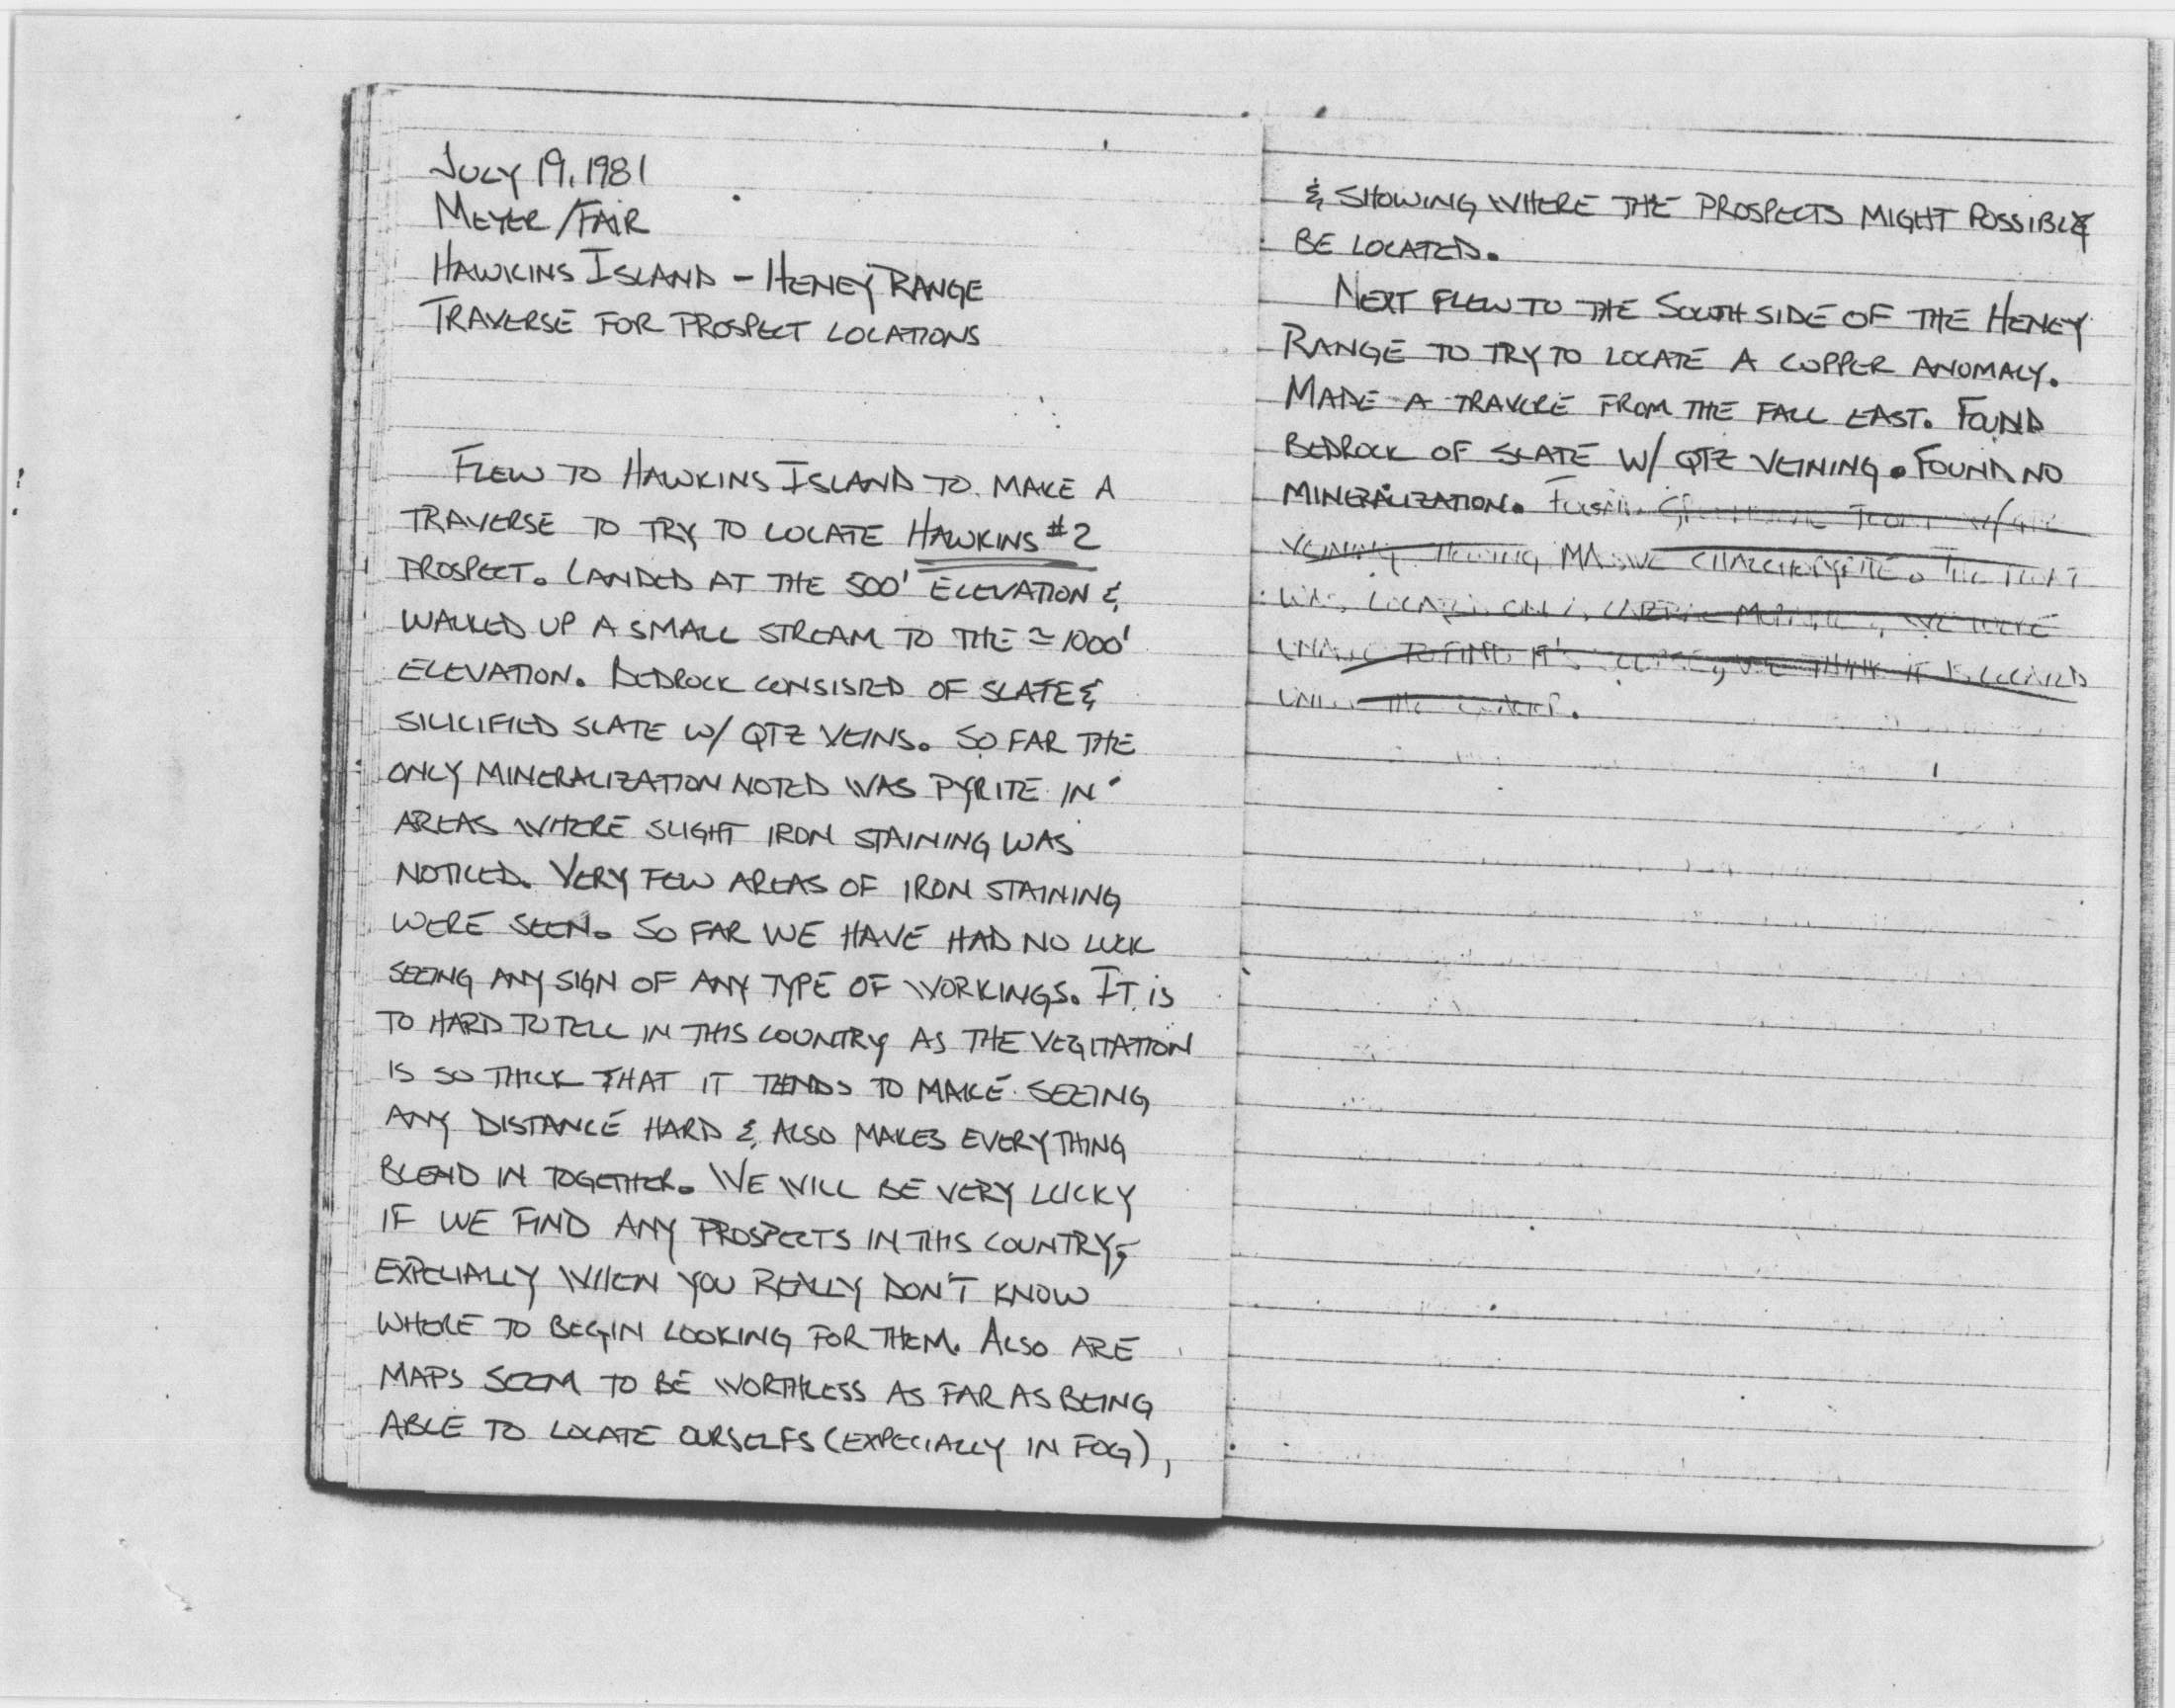 JULY 19, 1981
MEYER/FAIR
HAWKINS ISLAND - HENEY RANGE
TRAVERSE FOR PROSPECT LOCATIONS
FLEW TO HAWKINS ISLAND TO MAKE A
TRAVERSE TO TRY TO LOCATE HAWKINS #2
PROSPECT. LANDED AT THE 500' ELEVATION &
WALKED UP A SMALL STREAM TO THE ≃ 1000'
ELEVATION. BEDROCK CONSISTED OF SLATE &
SILICIFIED SLATE W/ QTZ VEINS. SO FAR THE
ONLY MINERALIZATION NOTED WAS PYRITE IN
AREAS WHERE SLIGHT IRON STAINING WAS
NOTICED. VERY FEW AREAS OF IRON STAINING
WERE SEEN. SO FAR WE HAVE HAD NO LUCK
SEEING ANY SIGN OF ANY TYPE OF WORKINGS. IT IS
TO HARD TO TELL IN THIS COUNTRY AS THE VEGITATION
IS SO THICK THAT IT TENDS TO MAKE SEEING
ANY DISTANCE HARD & ALSO MAKES EVERYTHING
BLEND IN TOGETHER. WE WILL BE VERY LUCKY
IF WE FIND ANY PROSPECTS IN THIS COUNTRY,
EXPECIALLY WHEN YOU REALLY DON'T KNOW
WHERE TO BEGIN LOOKING FOR THEM. ALSO ARE
MAPS SEEM TO BE WORTHLESS AS FAR AS BEING
ABLE TO LOCATE OURSELFS (EXPECIALLY IN FOG),
& SHOWING WHERE THE PROSPECTS MIGHT POSSIBLY
BE LOCATED.
NEXT FLEW TO THE SOUTH SIDE OF THE HENEY
RANGE TO TRY TO LOCATE A COPPER ANOMALY.
MADE A TRAVERE FROM THE FALL EAST. FOUND
BEDROCK OF SLATE W/ QTZ VEINING. FOUND NO
MINERALIZATION. FLOAT W/ QTZ
VEINING MASSIVE CHALCHOPYRITE. THE FLOAT
WAS LOCATED ON WE WERE
TO FIND IT'S WE THINK IT IS LOCATED
THE